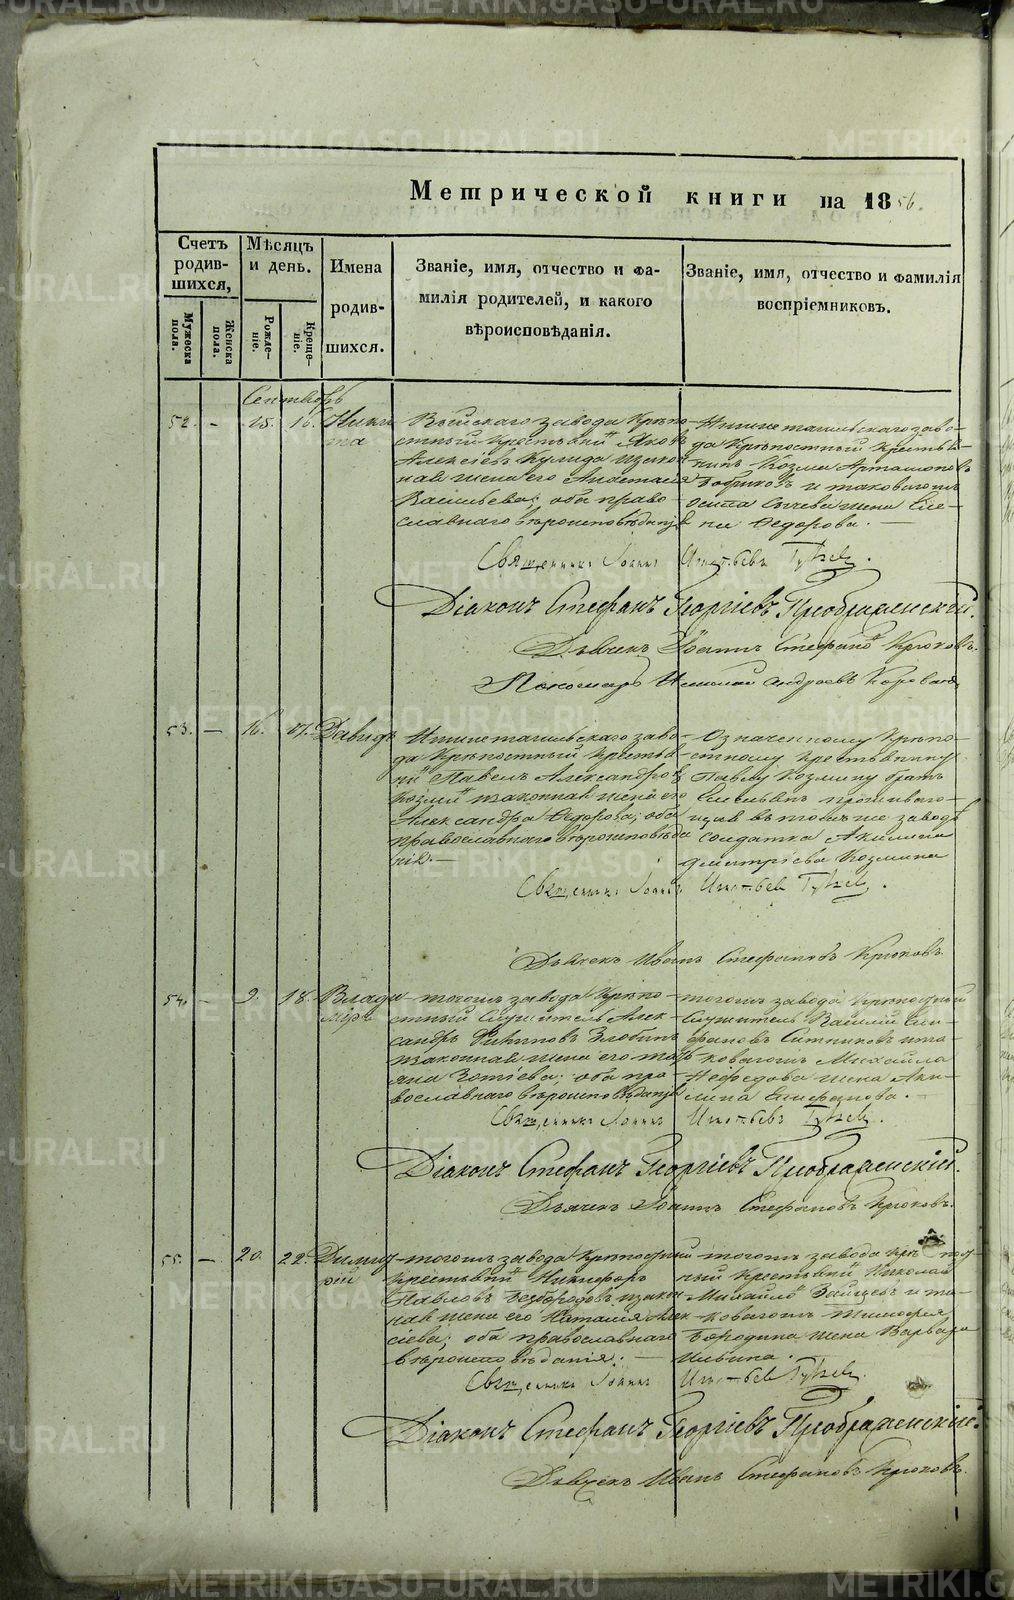 METRIKI.GASO-URAL.RU
Метрической книги на 1856.
Счетъ родившихся,
Мужеска пола.
Женска пола.
Мѣсяцъ и день.
Рожденіе.
Крещеніе.
Имена родившихся.
Званіе, имя, отчество и фамилія родителей, и какого вѣроисповѣданія.
Званіе, имя, отчество и фамилія воспріемниковъ.
Сентябрь
52. – 15. 16. Ники
та
Выйскаго завода Крѣпо
стный крестьянинъ Яковъ
Алексѣевъ и закон
ная жена его Анастасія
Васильева; оба право
славнаго вѣроисповѣданія
Нижнетагильскаго заво
да Крѣпостный крестья
нинъ Козма Артамоновъ
Бобриковъ и таковагожъ
Осипа Сычева жена Еле
на Ѳедорова. –
Священникъ Іоаннъ Игнатьевъ
Діаконъ Стефанъ Георгіевъ Преображенскій.
Дьячекъ Іоаннъ Стефановъ Крюковъ.
Пономарь Николай Андреевъ
53. – 16. 17. Давидъ
Нижнетагильскаго заво
да Крѣпостный крестья
нинъ Павелъ Александровъ
Козминъ и законная жена его
Александра Ѳедорова; оба
православнаго вѣроисповѣда
нія. –
Означенному крѣпо
стному крестьянину
Павлу Козмину братъ
Емельянъ проживаю
щая въ томъ же заводѣ
солдатка Акилина
Дмитріева Козмина
Священникъ Іоаннъ Игнатьевъ
Дьячекъ Иванъ Стефановъ Крюковъ
54. – 9. 18. Влади
міръ
тогожъ завода Крѣпо
стный Служитель Алек
сандръ Злобинъ
и законная жена его Татья
яна Зотѣева; оба пра
вославнаго вѣроисповѣданія
тогожъ завода Крѣпостный
Служитель Василій Сте
фановъ Ситниковъ и та
ковагожъ Михайла
Неѳедова жена Аки
лина Епифанова. –
Священникъ Іоаннъ Игнатьевъ
Діаконъ Стефанъ Георгіевъ Преображенскій.
Дьячекъ Іоаннъ Стефановъ Крюковъ.
55. – 20. 22. Димит
рій
тогожъ завода Крѣпостный
крестьянинъ Никифоръ
Павловъ Безбородовъ и закон
ная жена его Наталія Алек
сѣева; оба православнаго
вѣроисповѣданія. –
тогожъ завода Крѣпост
ный крестьянинъ Николай
Михайловъ Зайцевъ и та
ковагожъ Тимофея
Бородина жена Варвара
Ильина.
Священникъ Іоаннъ Игнатьевъ
Діаконъ Стефанъ Георгіевъ Преображенскій.
Дьячекъ Иванъ Стефановъ Крюковъ.